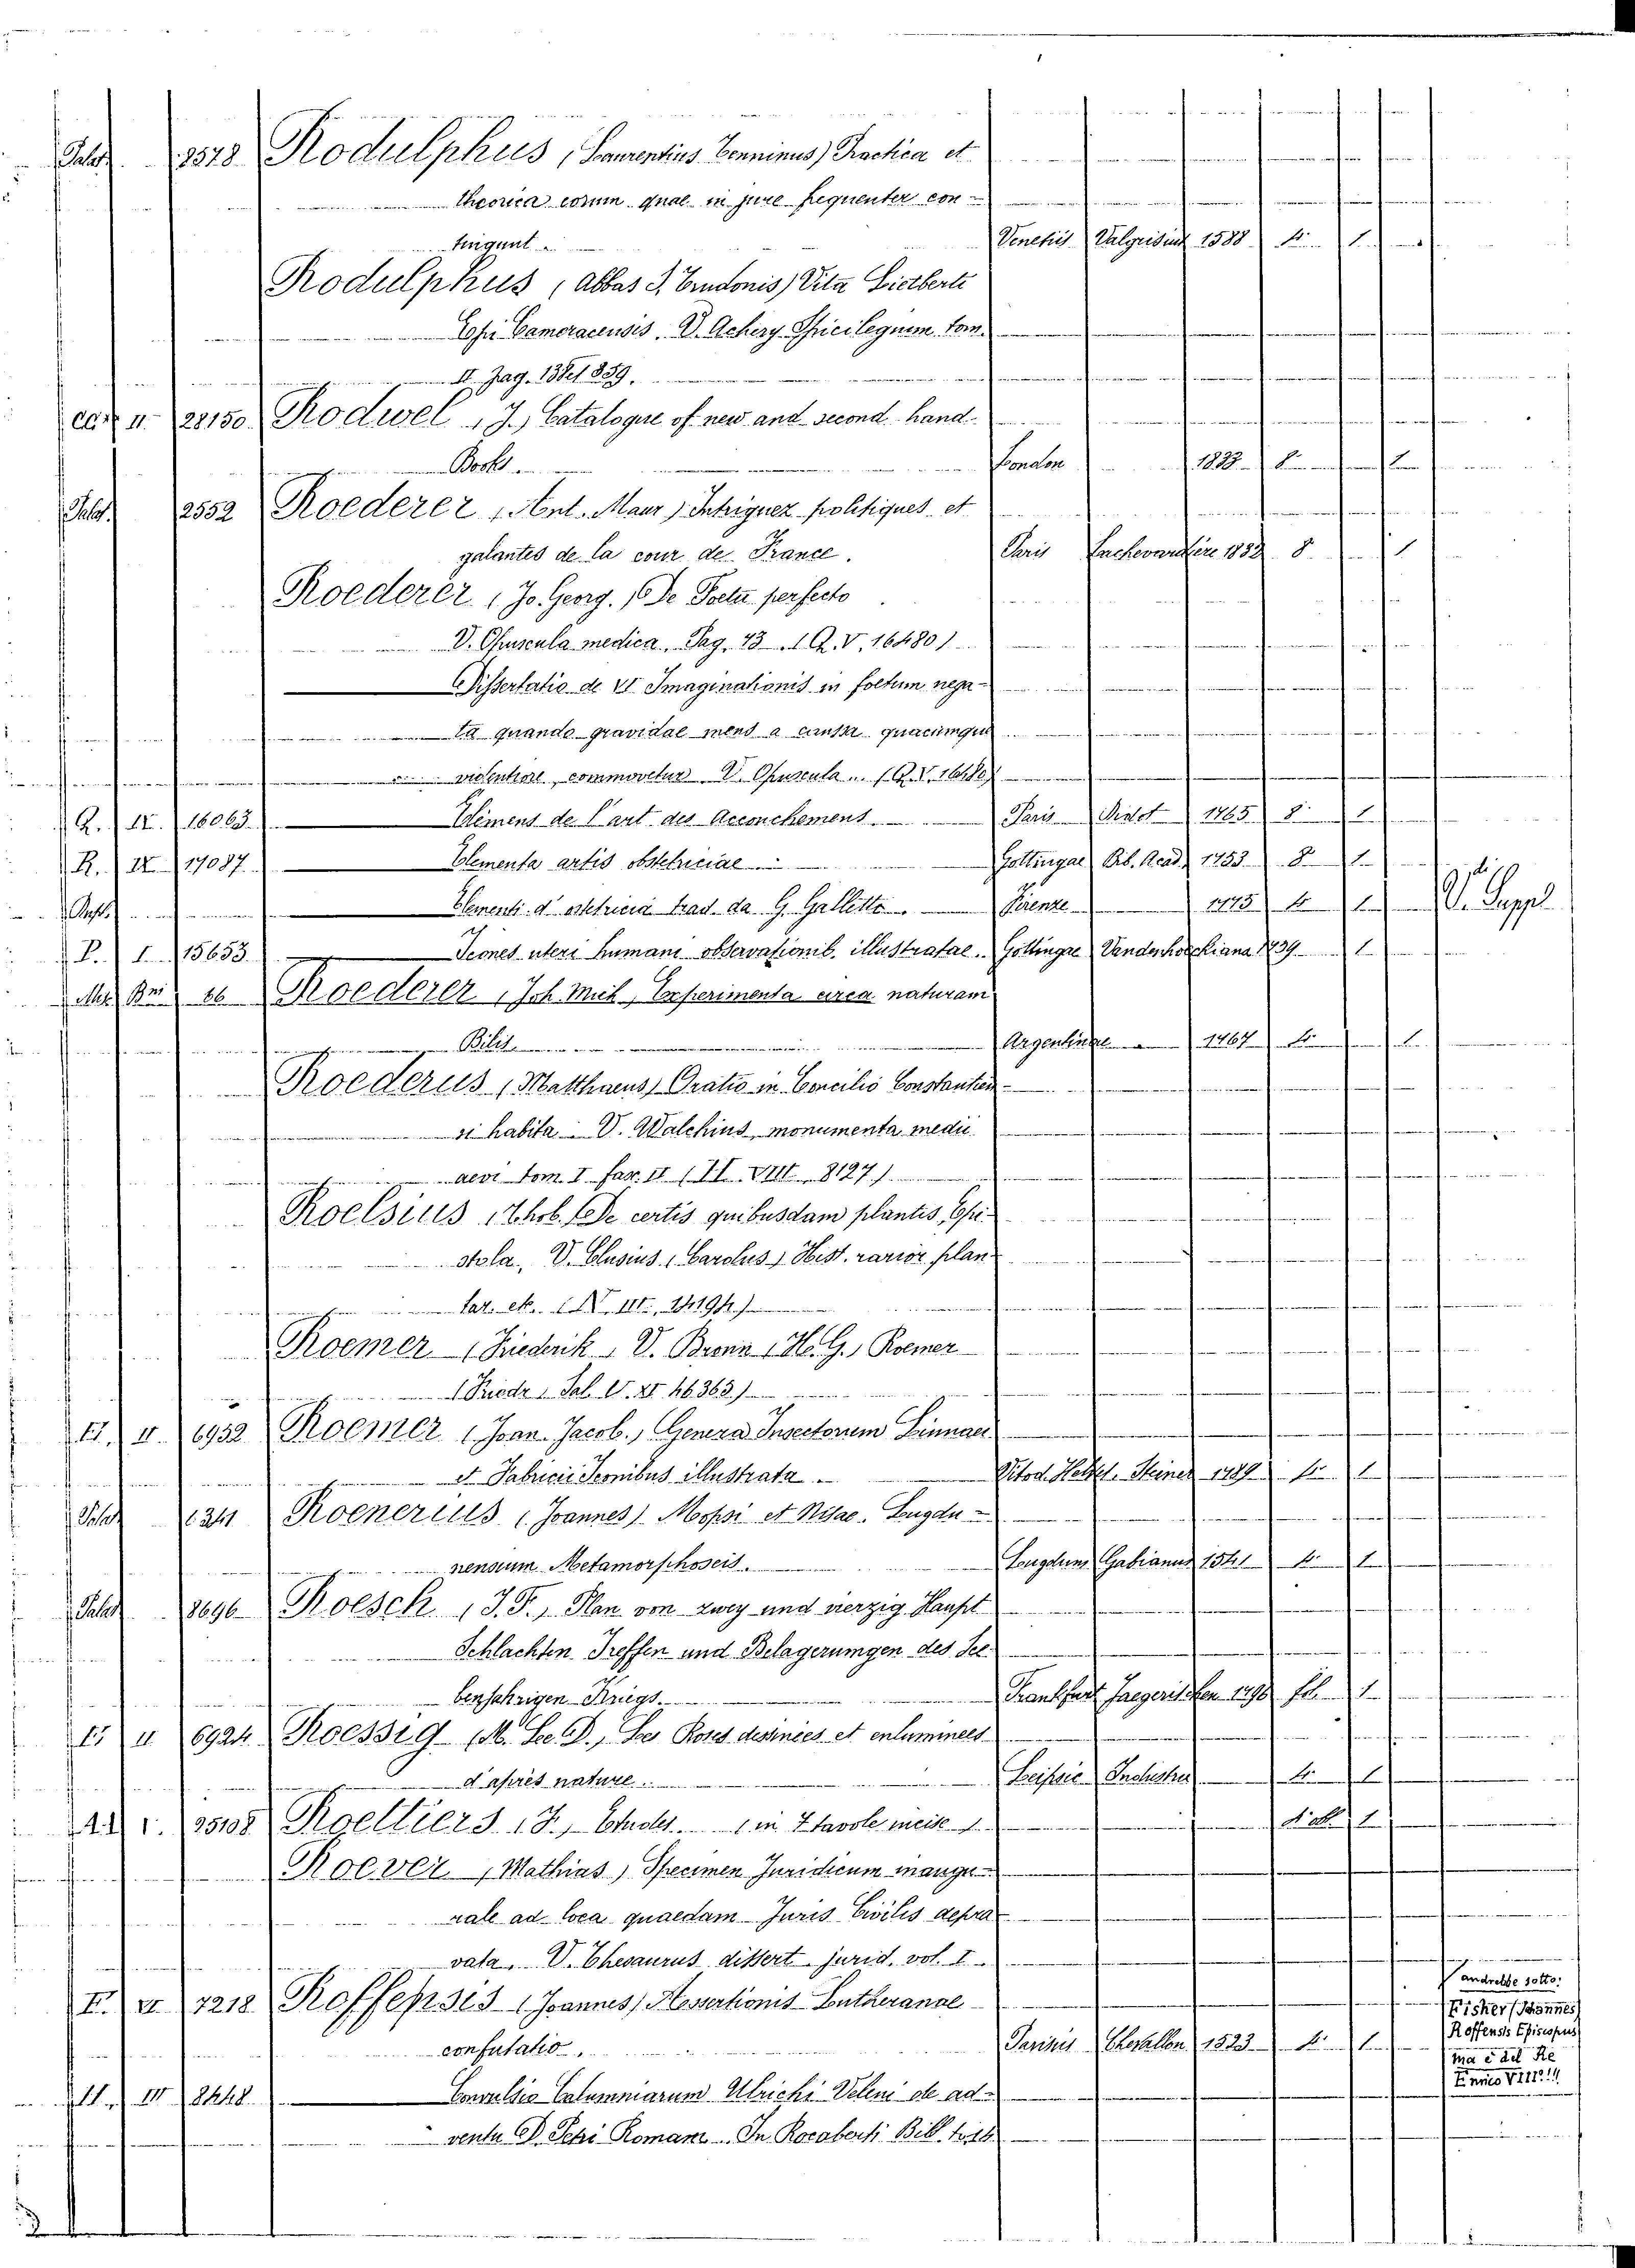 Palat. 2578 Rodulphus (Laurentius Venninus) Practica et
theorica eorum quae in jure frequenter con-
tingunt. Venetiis Valgrisius 1588 4. 1
Rodulphus (Abbas S. Trudonis) Vita Lietberti
Epi Cameracensis. V. Achery Spicilegium tom.
II. Pag. 138 et 839.
Cap. II. 28150 Rodwel (J.) Catalogue of new and second hand
Books. London 1823 8. 1
Palat. 2552 Roederer (Ant. Maur) Intriguez politiques et
galantes de la cour de France. Paris Lachevardière 1832 8. 1
Roederer (Jo. Georg.) De Foetu perfecto
V. Opuscula medica, Pag. 43. (Q. V. 16480)
Dissertatio de vi Imaginationis in foetum nega-
ta quando gravidae mens a causa quacumque
violentiore commovetur. V. Opuscula.. (Q. V. 16480)
Q. IV. 16063 Elémens de l'art des Acconchemens. Paris Didot 1765 8. 1
R. IV 17087 Elementa artis obstetriciae. Gottingae Bib. Acad. 1753 8. 1
Elementi d'ostetricia trad. da G. Galletti. Firenze 1775 4. 1 V. Suppl.
P. I 15653 Icones uteri humani observationib. illustratae. Gottingae Vandenhoeckiana 1759 1
Bri 26 Roederer (Joh. Mich.) Experimenta circa naturam
Bilis. Argentinae 1767 4. 1
Roederus (Matthaeus) Oratio in Concilio Constantien-
si habita. V. Walchius, monumenta medii
aevi tom. I fas. II (II. VIII. 8127)
Roelsius (Thob.) De certis quibusdam plantis, Epi-
stola. V. Clusius (Carolus) Hist. rarior plan-
tar. etc. (N. III. 14194.)
Roemer (Friederik) V. Bronn (H. G.) Roemer
(Friedr.) Sal. V. XI. 46.363.)
II. II. 6952 Roemer (Joan. Jacob.) Genera Insectorum Linnaei
et Fabricii Iconibus illustrata. Vitod. Helvet. Steiner 1789 4. 1
Palat. 6241 Roenerius (Joannes) Mopsi et Nisae. Lugdu-
nensium Metamorphoseis. Lugduni Gabianus 1541 4. 1
Palat. 8696 Roesch (J. F.) Plan von zwey und vierzig Haupt
Schlachten Treffen und Belagerungen des Sie-
benjahrigen Kriegs. Frankfurt Jaegerischen 1790 fol. 1
II 6924 Roessig (M. Le D.) Les Roses dessinées et enluminées
d'après nature. Leipsic Industrie 4. 1
I. 25108 Roettiers (F.) Etudes. (in 7 tavole incise) 1
Roever (Mathias) Specimen Juridicum inaugu-
rale ad loca quaedam Juris Civilis depra-
vata. V. Thesaurus dissert. jurid. vol. I.
F. VI 7218 Roffensis (Joannes) Assertionis Lutheranae
confutatio. Parisiis Chevallon 1523 4. 1
andrebbe sotto:
Fisher (Johannes)
Roffensis Episcopus
ma è del Re
Enrico VIII!!!
II. III 8448 Convulsio Calumniarum Ulrichi Veleni de ad-
ventu D. Petri Romam. In Rocaberti Bib.